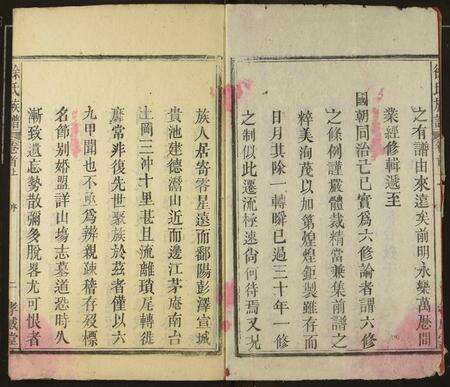 之有譜由來遠矣前明永樂萬曆間
業經修輯遞至
國朝同治己巳實為六修論者謂六修
之條例謹嚴體裁精當兼集前譜之
粹美洵茂以加第煌煌鉅製雖存而
日月其除一轉瞬已過三十年一修
之制似此遷流極速尙何待焉又況
族人居寄零星遠而鄱陽彭澤宣城
貴池建德灊山近而邊江茅庵南古
土岡三冲十里甚且流離瑣尾轉徙
靡常非復先世聚族於茲者僅以六
九甲聞也不亟為辨親疎稽存歿標
名飾別婚盟詳山塲志墓道恐時久
漸致遺忘勢散彌多脫畧尤可恨者
徐氏族譜
卷首上
序
二
孝感堂